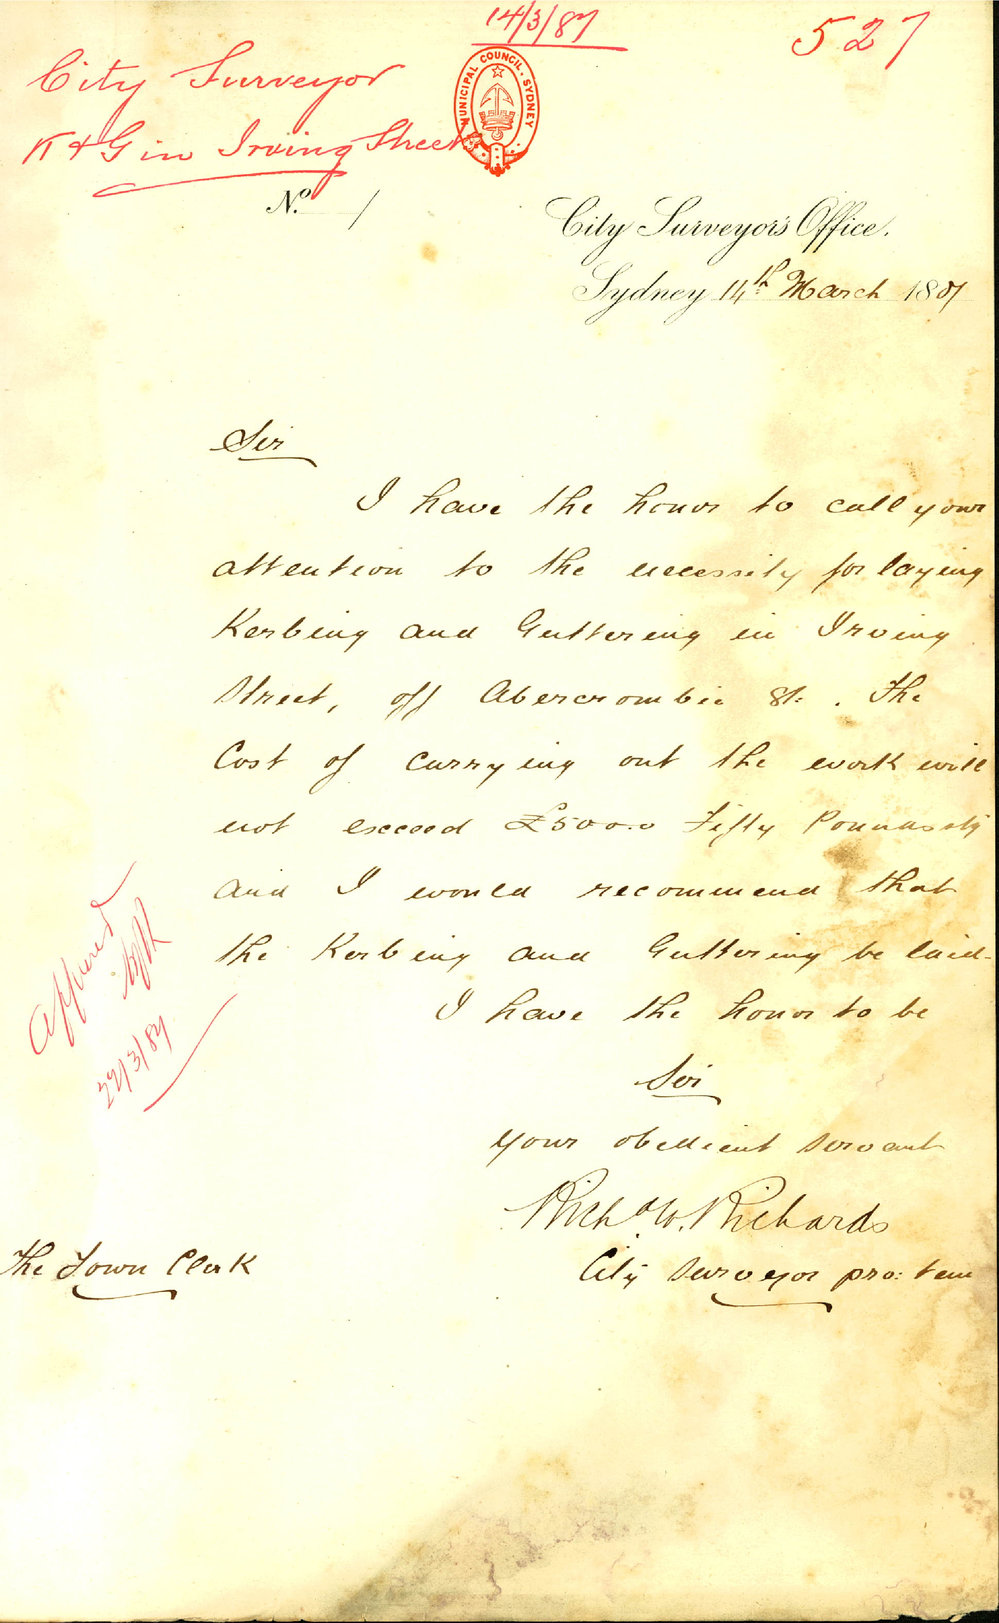 14/3/87
527
City Surveyor
K & G in Irving Street
MUNICIPAL COUNCIL · SYDNEY
No. 1
City Surveyor's Office.
Sydney 14th March 1887
Sir
I have the honor to call your
attention to the necessity for laying
Kerbing and Guttering in Irving
Street, off Abercrombie St. . The
Cost of carrying out the work will
not exceed £50 0.0 Fifty Pounds stg
and I would recommend that
the Kerbing and Guttering be laid.
I have the honor to be
Sir
Your obedient servant
Richd W. Richards
City Surveyor pro: tem
The Town Clerk
Approved
22/3/87